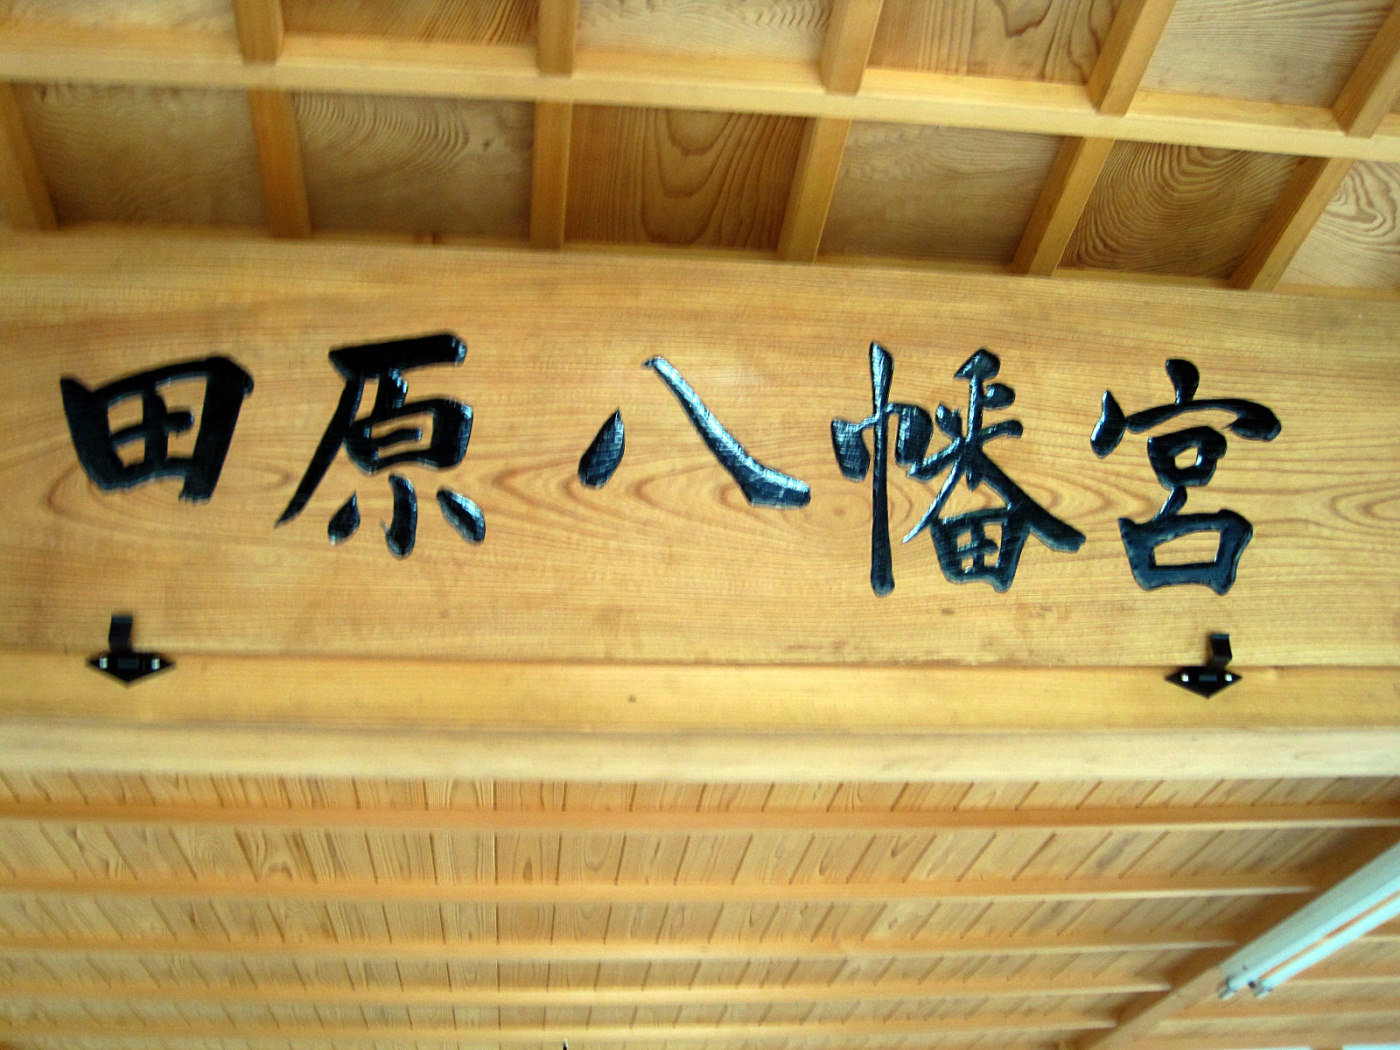 田原八幡宮